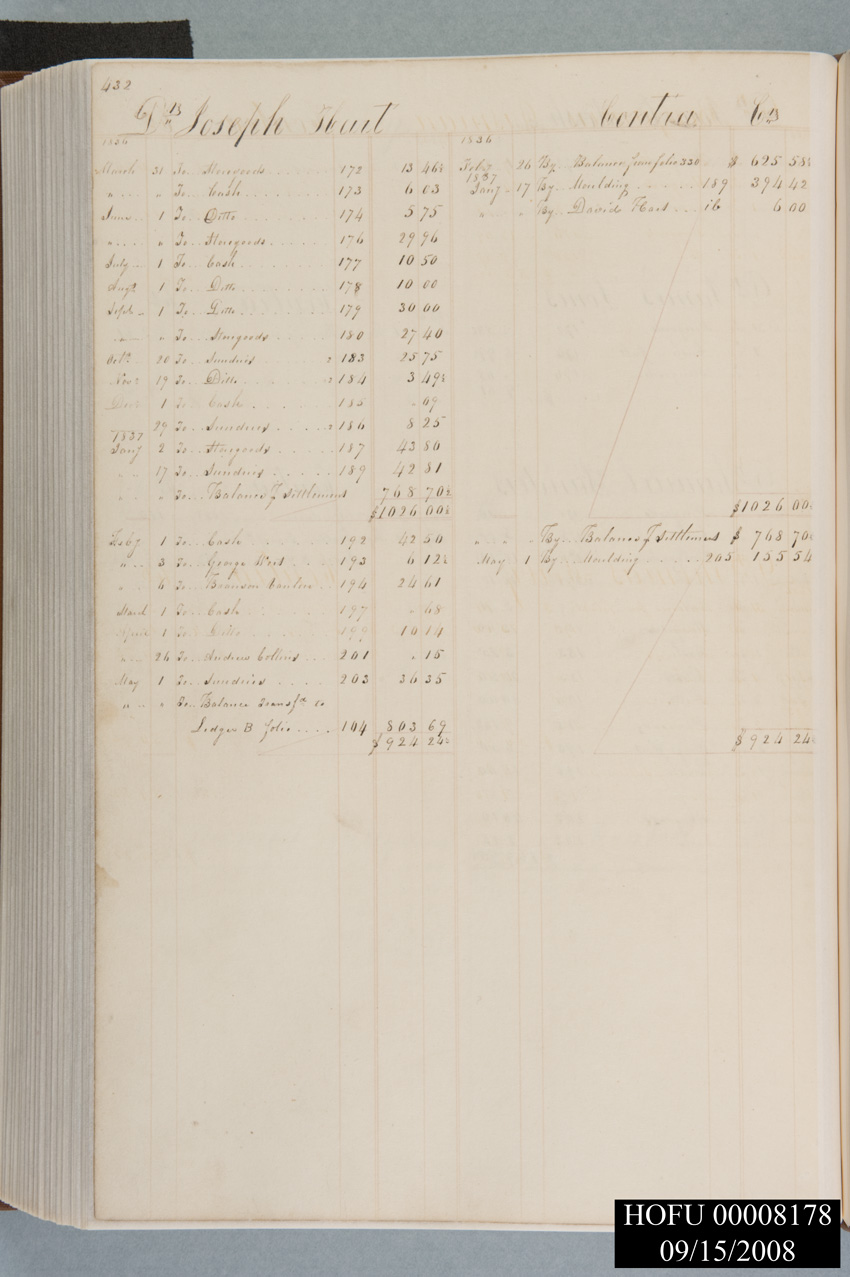 432
Drs Joseph Hart Contra Crs
1836
March 31 To Storegoods 172 13 46½
" " To Cash 173 6 03
June 1 To Ditto 174 5 75
" " To Storegoods 176 29 96
July 1 To Cash 177 10 50
Augt 1 To Ditto 178 10 00
Septr 1 To Ditto 179 30 00
" " To Storegoods 180 27 40
Octr 20 To Sundries 183 25 75
Novr 19 To Ditto 184 3 49½
Decr 1 To Cash 185 " 09
29 To Sundries 186 8 25
1837
Jany 2 To Storegoods 187 43 80
" 17 To Sundries 189 42 81
" " To Balance settlement 768 70½
$1026 00½
Feby 1 To Cash 192 42 50
" 3 To George West 193 6 12½
" 6 To 194 24 61
March 1 To Cash 197 " 68
April 1 To Ditto 199 10 14
" 26 To Andrew Collins 201 " 15
May 1 To Sundries 203 36 35
" " To Balance Transfd to
Ledger B folio 104 803 69
$924 24½
1836
Feby 26 By Balance from folio 330 $ 625 58½
1837
Jany 17 By Moulding 189 394 42
" " By David Hart ib 6 00
$1026 00½
" " By Balance settlement $ 768 70½
May 1 By Moulding 205 155 54
$924 24½
HOFU 00008178
09/15/2008